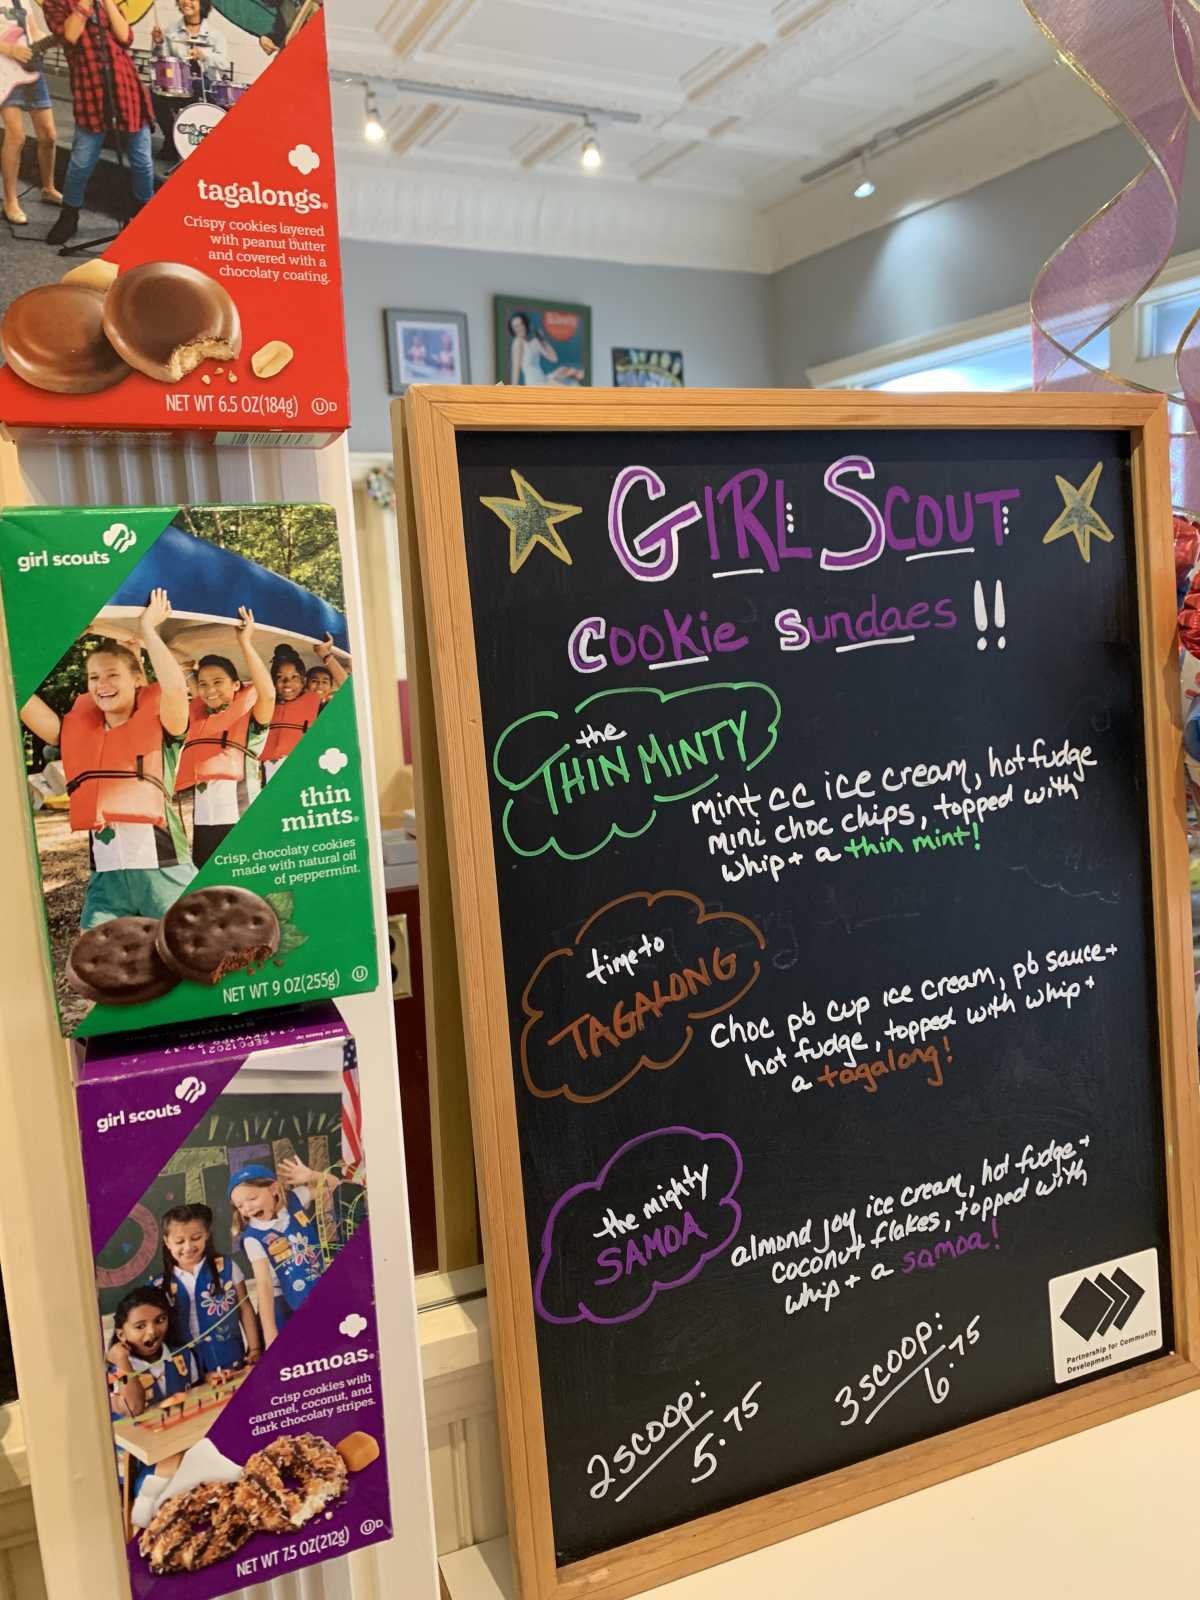 tagalongs®
Crispy cookies layered
with peanut butter
and covered with a
chocolaty coating.
NET WT 6.5 OZ(184g) U D
girl scouts
thin
mints®
Crisp, chocolaty cookies
made with natural oil
of peppermint.
NET WT 9 OZ(255g) U
SEP012021
girl scouts
samoas®
Crisp cookies with
caramel, coconut, and
dark chocolaty stripes.
NET WT 7.5 OZ(212g) U D
GIRL SCOUT
Cookie Sundaes!!
the
THIN MINTY
mint cc ice cream, hot fudge
mini choc chips, topped with
whip + a thin mint!
time to
TAGALONG
choc pb cup ice cream, pb sauce +
hot fudge, topped with whip +
a tagalong!
the mighty
SAMOA
almond joy ice cream, hot fudge +
coconut flakes, topped with
whip + a samoa!
2 scoop:
5.75
3 scoop:
6.75
Partnership for Community
Development